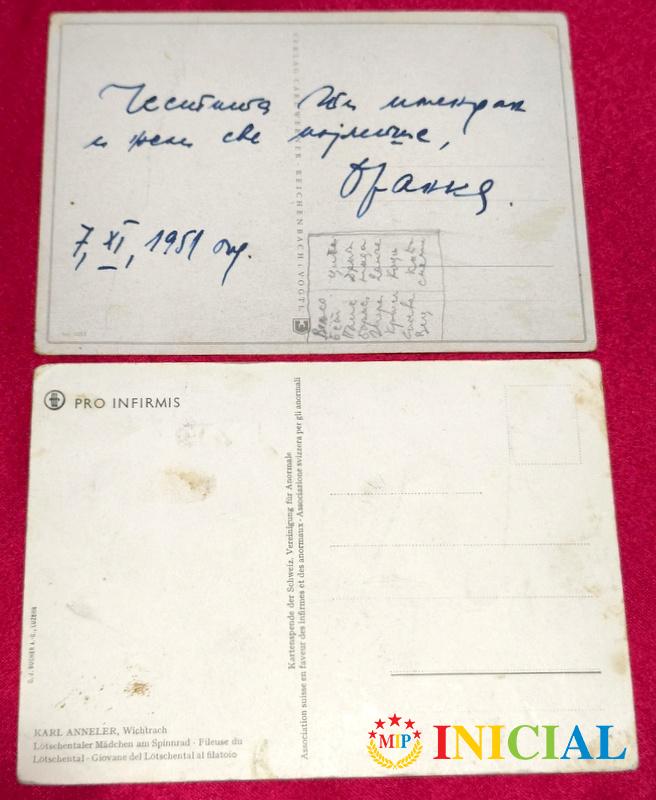 Честита Ти имендан
и жели све најлепше,
Бранка.
7, XI, 1951 год.
VERLAG CARL WERNER · REICHENBACH i VOGTL
PRO INFIRMIS
Kartenspende der Schweiz. Vereinigung für Anormale
Association suisse en faveur des infirmes et des anormaux · Associazione svizzera per gli anormali
C. J. BUCHER A.-G., LUZERN
KARL ANNELER, Wichtrach
Lötschentaler Mädchen am Spinnrad · Fileuse du
Lötschental · Giovane del Lötschental al filatoio
MIP INICIAL